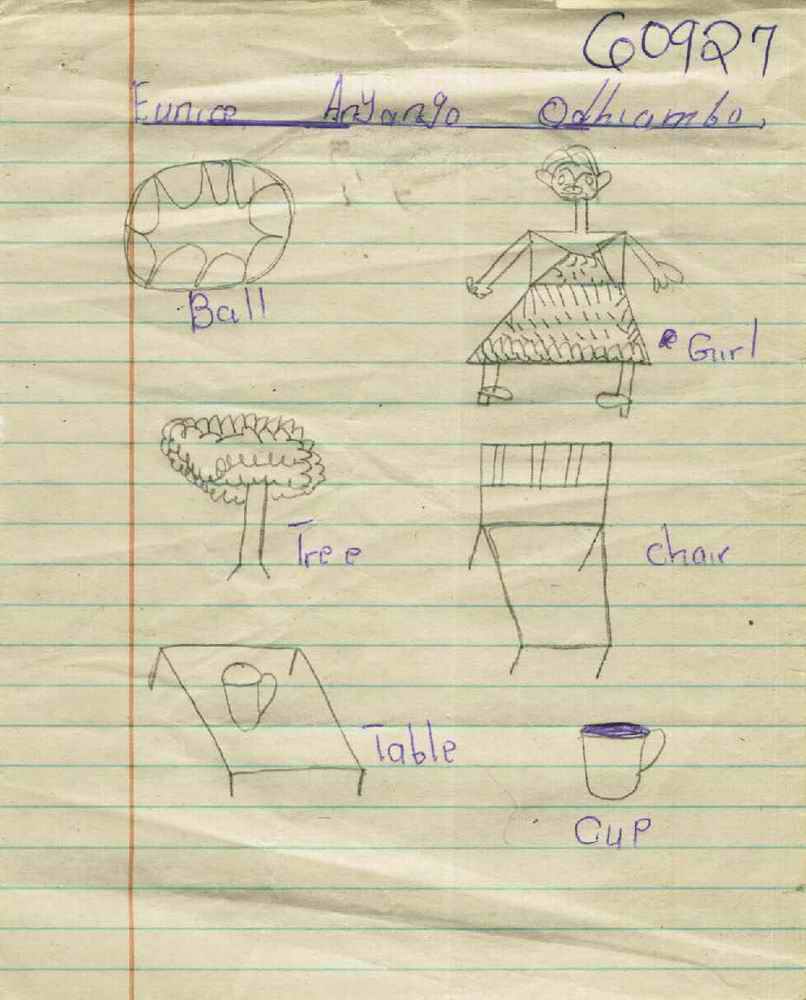 60927
Eunice Anyango Odhiambo.
Ball
Girl
Tree
chair
Table
Cup